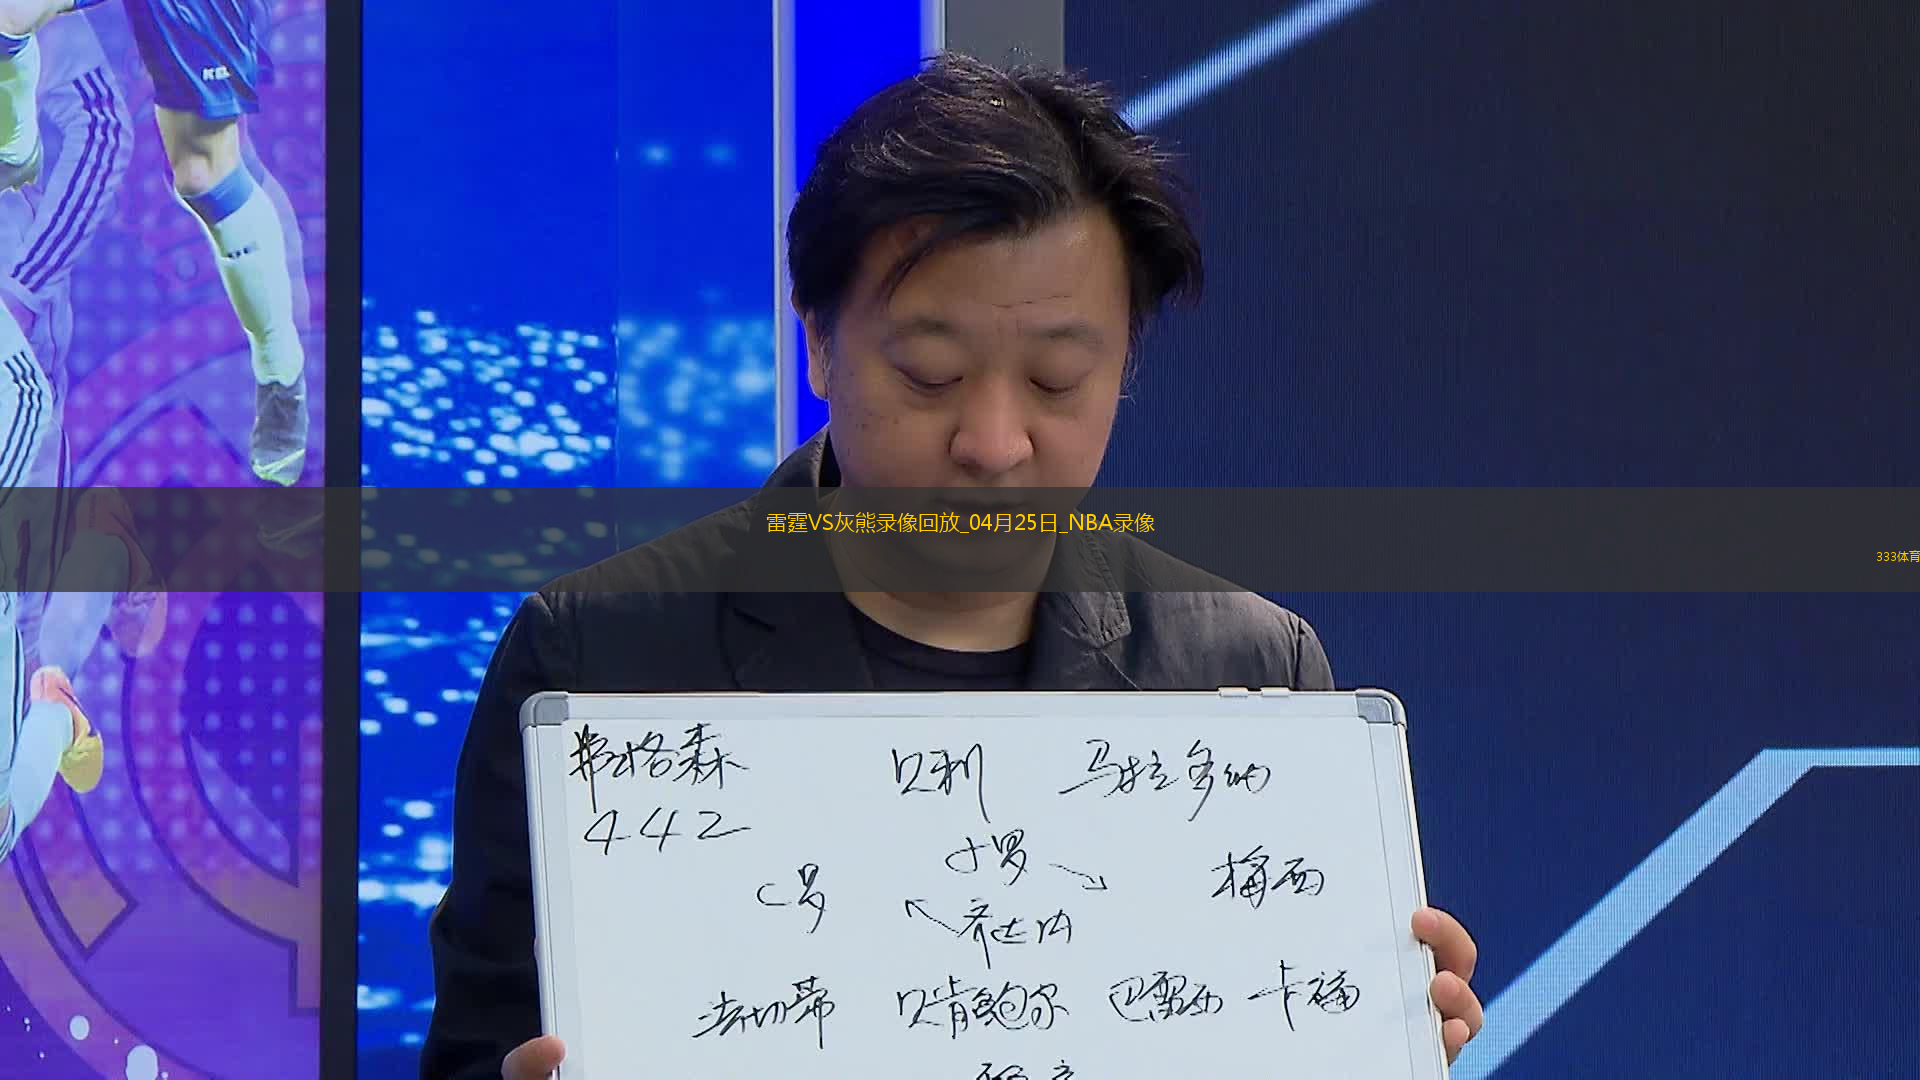 KEL
雷霆VS灰熊录像回放_04月25日_NBA录像
333体育
弗格森 贝利 马拉多纳
442
小罗
C罗 梅西
齐达内
法切蒂 贝肯鲍尔 巴雷西 卡福